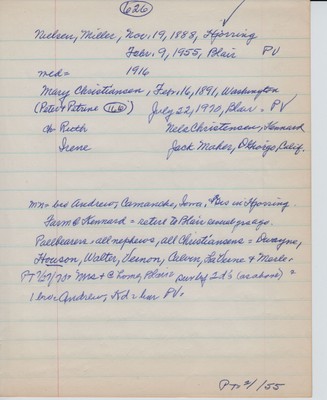 626
Nielsen, Miller, Nov. 19, 1888, Hjorring
Febr. 9, 1955, Blair PV
med = 1916
Mary Christiansen, Febr. 16, 1891, Washington
(Peter & Petrine 116) July 22, 1970, Blair - PV
ch Ruth Nels Christensen, Kennard
Irene Jack Maher, Calif.
mn = bro Andrew, Camanche, Iowa, Bro in Hjorring.
Farm @ Kennard = retire to Blair several yrs ago.
Pallbearers = all nephews, all Christiansens = Dwayne,
Howson, Walter, Vernon, Calvin, LaVerne & Merle.
PT 7/27/70 = Mrs + C Home, Blair = surv by 2 d's (as above) =
1 bro. Andrew, Kd = bur PV.
PT 2/ /55